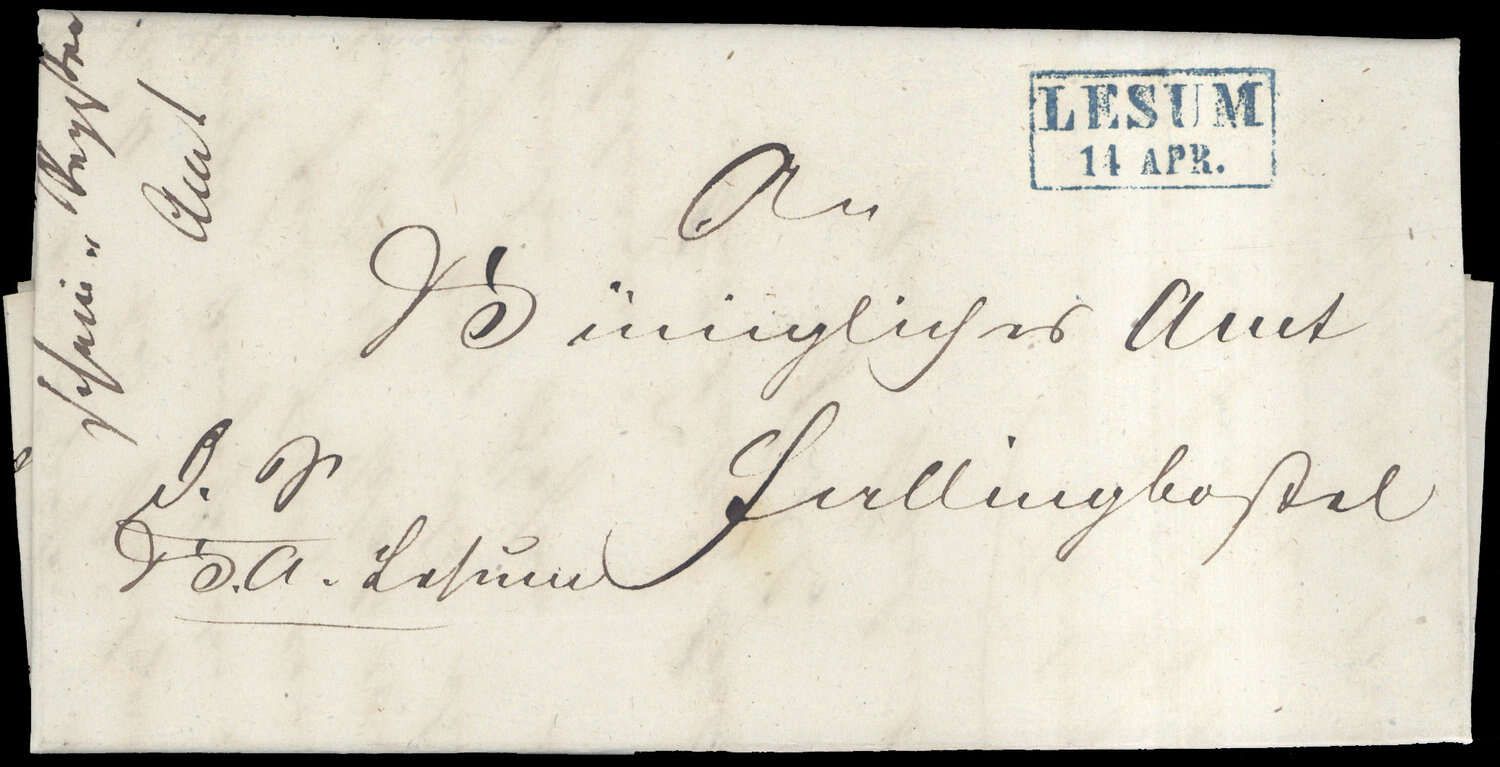 LESUM
14 APR.
An
Königliches Amt
Fallingbostel
D. S.
K. A. Lesum
Amt